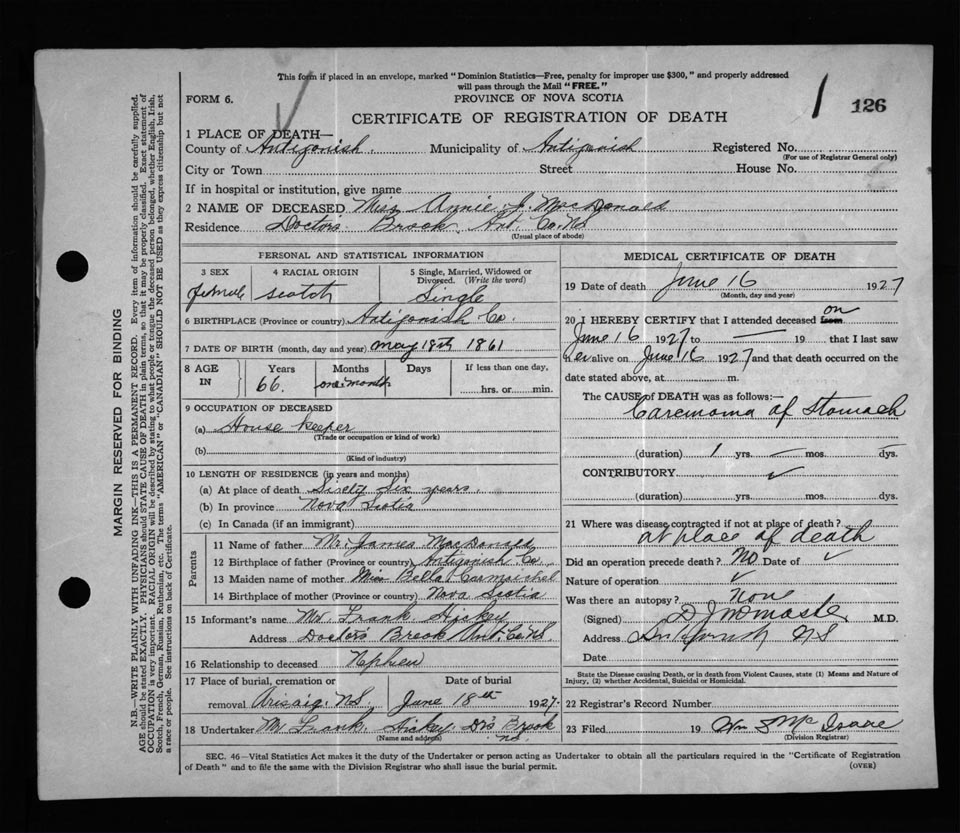 This form if placed in an envelope, marked "Dominion Statistics—Free, penalty for improper use $300," and properly addressed
will pass through the Mail "FREE."
FORM 6.
PROVINCE OF NOVA SCOTIA
1 126
CERTIFICATE OF REGISTRATION OF DEATH
1 PLACE OF DEATH—
County of Antigonish Municipality of Antigonish Registered No.
(For use of Registrar General only)
City or Town Street House No.
If in hospital or institution, give name
2 NAME OF DECEASED Miss Annie J. MacDonald
Residence Doctors Brook, Ant. Co. NS
(Usual place of abode)
PERSONAL AND STATISTICAL INFORMATION
3 SEX 4 RACIAL ORIGIN 5 Single, Married, Widowed or
Divorced. (Write the word)
female scotch Single
6 BIRTHPLACE (Province or country) Antigonish Co.
7 DATE OF BIRTH (month, day and year) may 18th 1861
8 AGE IN Years Months Days If less than one day,
66. one month hrs. or min.
9 OCCUPATION OF DECEASED
(a) House Keeper
(Trade or occupation or kind of work)
(b)
(Kind of industry)
10 LENGTH OF RESIDENCE (in years and months)
(a) At place of death Sixty Six years
(b) In province Nova Scotia
(c) In Canada (if an immigrant)
Parents
11 Name of father Mr. James MacDonald
12 Birthplace of father (Province or country) Antigonish Co.
13 Maiden name of mother Miss Bella Carmichel
14 Birthplace of mother (Province or country) Nova Scotia
15 Informant's name Mr Frank Hickey
Address Doctors Brook Ant. Co. NS
16 Relationship to deceased Nephew
17 Place of burial, cremation or Date of burial
removal Arisaig. NS, June 18th 1927.
18 Undertaker Mr Frank Hickey Drs Brook
(Name and address) NS
MEDICAL CERTIFICATE OF DEATH
19 Date of death June 16 1927
(Month, day and year)
20 I HEREBY CERTIFY that I attended deceased from on
June 16 1927 to — 19 that I last saw
h er alive on June 16 1927 and that death occurred on the
date stated above, at m.
The CAUSE of DEATH was as follows:—
Carcinoma of Stomach
(duration) 1 yrs. — mos. — dys.
CONTRIBUTORY ✓
(duration) yrs. mos. dys.
21 Where was disease contracted if not at place of death?
at place of death
Did an operation precede death? No Date of ✓
Nature of operation ✓
Was there an autopsy? None
(Signed) M.D.
Address Antigonish NS
Date
State the Disease causing Death, or in death from Violent Causes, state (1) Means and Nature of
Injury, (2) whether Accidental, Suicidal or Homicidal.
22 Registrar's Record Number
23 Filed 19 Wm S McIsaac
(Division Registrar)
SEC. 46—Vital Statistics Act makes it the duty of the Undertaker or person acting as Undertaker to obtain all the particulars required in the "Certificate of Registration
of Death" and to file the same with the Division Registrar who shall issue the burial permit.
(OVER)
MARGIN RESERVED FOR BINDING
N.B.—WRITE PLAINLY WITH UNFADING INK—THIS IS A PERMANENT RECORD. Every item of information should be carefully supplied.
AGE should be stated EXACTLY. PHYSICIANS should STATE CAUSE OF DEATH in plain terms, so that it may be properly classified. Exact statement of
OCCUPATION is very important. RACIAL ORIGIN will be described by stating to what people or tongue the deceased person belonged, whether English, Irish,
Scotch, French, German, Russian, Ruthenian, etc. The terms "AMERICAN" or "CANADIAN" SHOULD NOT BE USED as they express citizenship but not
a race or people. See instructions on back of Certificate.